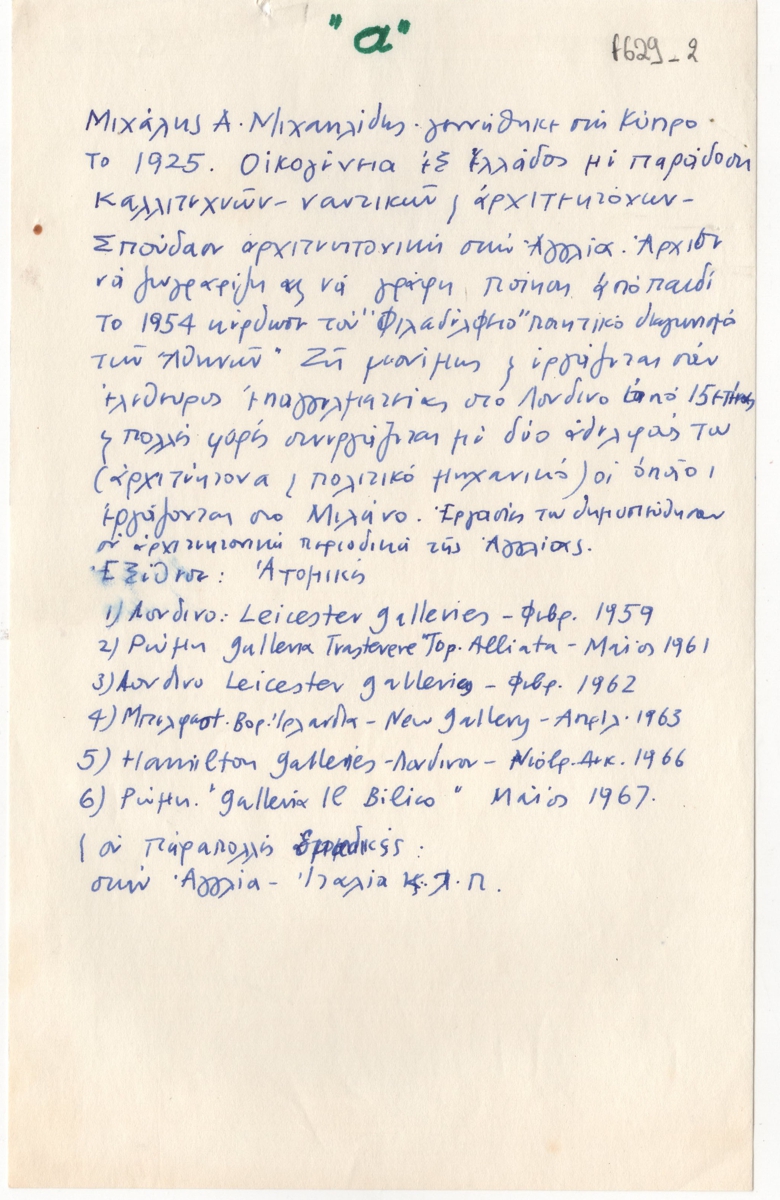 "α"
f629-2
Μιχάλης Α. Μιχαηλίδης. γεννήθηκε στή Κύπρο
το 1925. Οἰκογένεια ἐξ Ἑλλάδος μέ παράδοση
Καλλιτεχνῶν - ναυτικῶν ϗ ἀρχιτεκτόνων -
Σπούδασε ἀρχιτεκτονική στήν Ἀγγλία. Ἄρχισε
νά ζωγραφίζη ϗ νά γράφη Ποίηση ἀπό παιδί
Το 1954 κέρδισε τον "Φιλαδέλφειο" ποιητικό διαγωνισμό
τῶν Ἀθηνῶν" Ζῆ μονίμως ϗ ἐργάζεται σάν
ἐλεύθερος ἐπαγγελματίας στό Λονδίνο ἀπό 15ετίας
ϗ πολλές φορές συνεργάζεται μέ δύο ἀδελφούς του
(ἀρχιτέκτονα ϗ πολιτικό μηχανικό) οἱ ὁποῖοι
ἐργάζονται στο Μιλάνο. Ἐργασίες του δημοσιεύθησαν
σέ ἀρχιτεκτονικά περιοδικά τῆς Ἀγγλίας.
Ἐξέθεσε: Ἀτομικές
1) Λονδίνο: Leicester galleries - Φεβρ. 1959
2) Ρώμη galleria Trastevere Top. Alliata - Μαϊος 1961
3) Λονδίνο Leicester galleries - Φεβρ. 1962
4) Μπελφαστ. Βορ. Ἰρλανδία - New gallery - Απριλ. 1963
5) Hamilton galleries - Λονδινον - Νιόβρ. Δεκ. 1966
6) Ρώμη. "galleria Il Bilico" Μάϊος 1967.
ϗ σέ πάραπολλές ὁμαδικές:
στήν Ἀγγλία - Ἰταλία κ.λ.π.